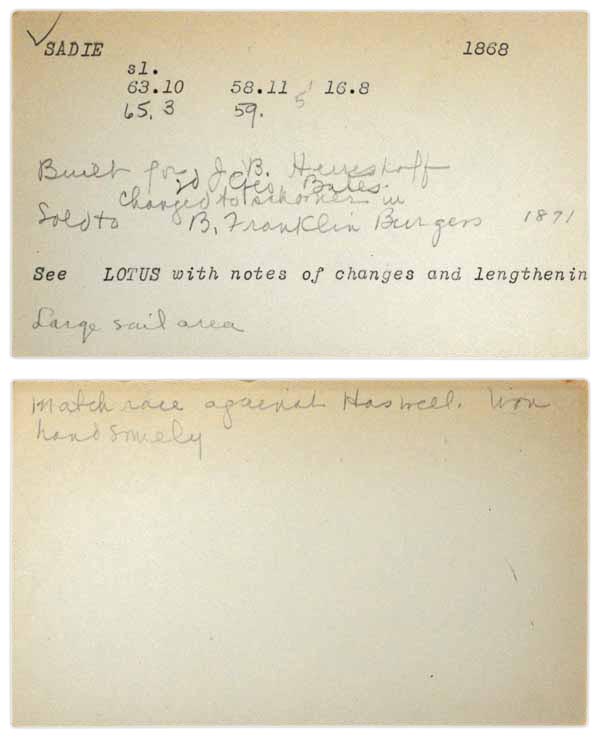 SADIE 1868
sl.
63.10 58.11 16.8
65.3 59. 5
Built for J. B. Herreshoff
sd Geo Bates.
changed to schooner in
Sold to B. Franklin Burgess 1871
See LOTUS with notes of changes and lengthenin
Large sail area
Match race against Haswell. Won
handsomely